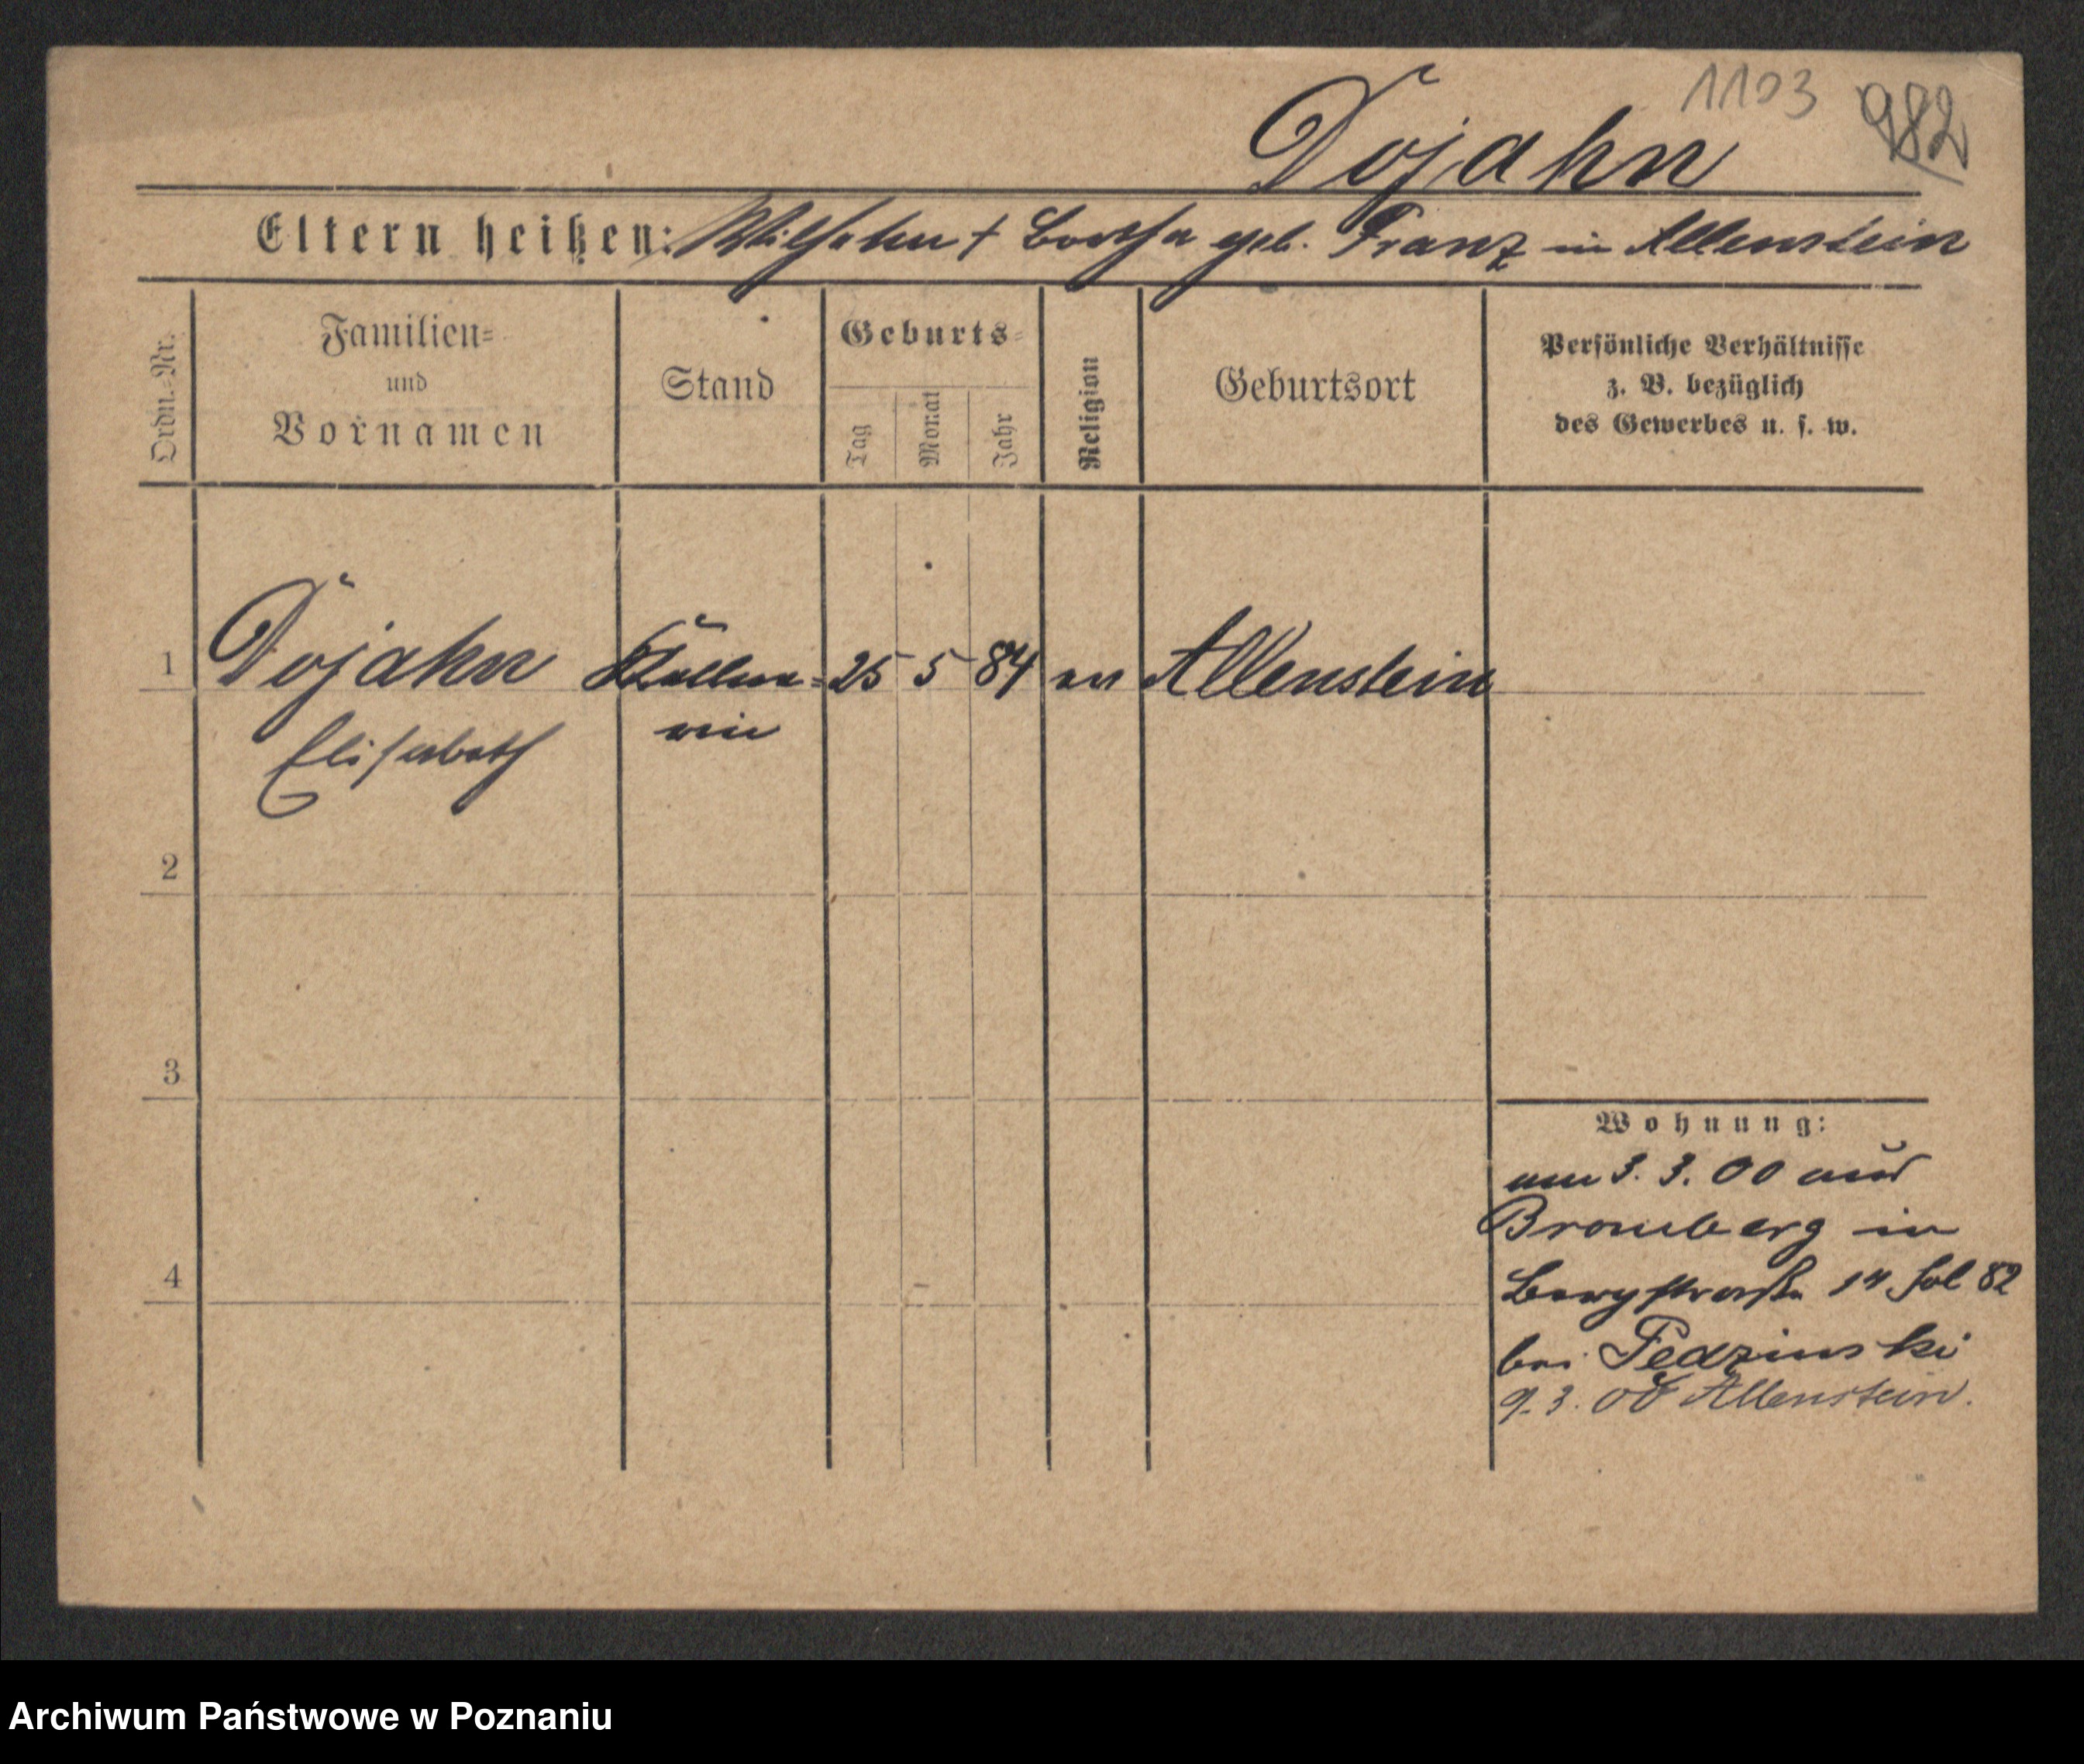 1103 982
Dojahn
Eltern heißen: Wilhelm † Bertha geb. Franz in Allenstein
Ordn.-Nr.
Familien=
und
Vornamen
Stand
Geburts=
Tag
Monat
Jahr
Religion
Geburtsort
Persönliche Verhältnisse
z. B. bezüglich
des Gewerbes u. s. w.
1 Dojahn Kellne= 25 5 84 ev Allenstein
Elisabeth rin
2
3
4
Wohnung:
am 3. 3. 00 aus
Bromberg in
Bergstraße 14 fol 82
bei Pedzinski
9. 3. 00 Allenstein.
Archiwum Państwowe w Poznaniu